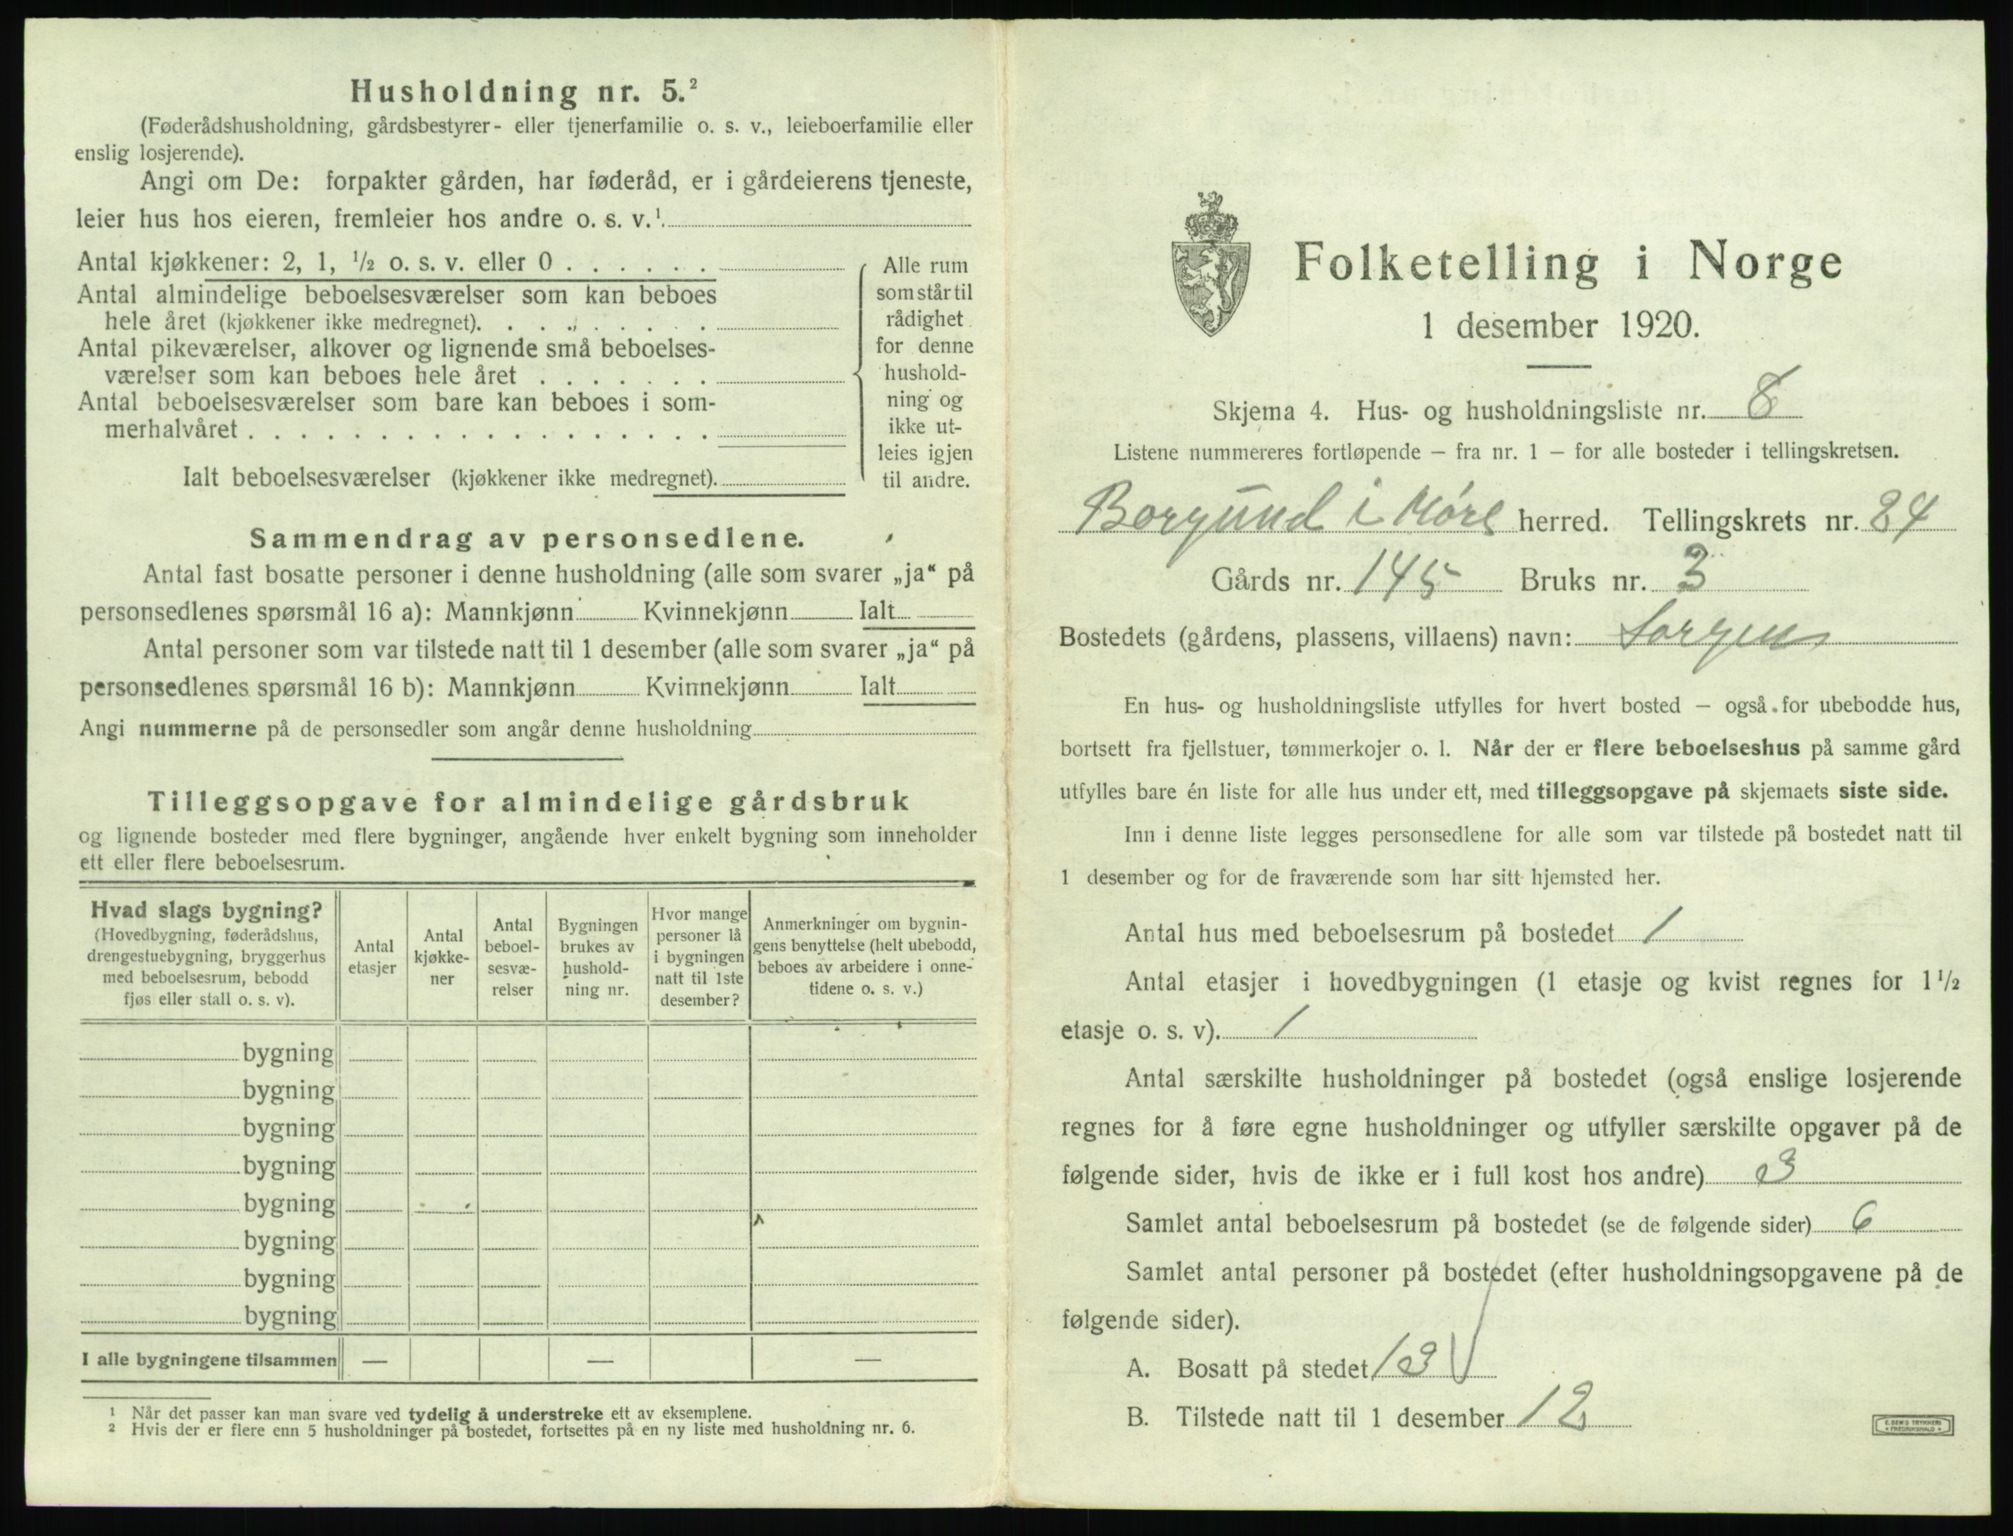 Husholdning nr. 5.²
(Føderådshusholdning, gårdsbestyrer- eller tjenerfamilie o. s. v., leieboerfamilie eller
enslig losjerende).
Angi om De: forpakter gården, har føderåd, er i gårdeierens tjeneste,
leier hus hos eieren, fremleier hos andre o. s. v.¹
Antal kjøkkener: 2, 1, ½ o. s. v. eller 0
Antal almindelige beboelsesværelser som kan beboes
hele året (kjøkkener ikke medregnet)
Antal pikeværelser, alkover og lignende små beboelses-
værelser som kan beboes hele året
Antal beboelsesværelser som bare kan beboes i som-
merhalvåret
Ialt beboelsesværelser (kjøkkener ikke medregnet)
Alle rum
som står til
rådighet
for denne
hushold-
ning og
ikke ut-
leies igjen
til andre.
Sammendrag av personsedlene.
Antal fast bosatte personer i denne husholdning (alle som svarer „ja“ på
personsedlenes spørsmål 16 a): Mannkjønn Kvinnekjønn Ialt
Antal personer som var tilstede natt til 1 desember (alle som svarer „ja“ på
personsedlenes spørsmål 16 b): Mannkjønn Kvinnekjønn Ialt
Angi nummerne på de personsedler som angår denne husholdning
Tilleggsopgave for almindelige gårdsbruk
og lignende bosteder med flere bygninger, angående hver enkelt bygning som inneholder
ett eller flere beboelsesrum.
Hvad slags bygning?
(Hovedbygning, føderådshus,
drengestuebygning, bryggerhus
med beboelsesrum, bebodd
fjøs eller stall o. s. v).
Antal
etasjer
Antal
kjøkke-
ner
Antal
beboel-
sesvæ-
relser
Bygningen
brukes av
hushold-
ning nr.
Hvor mange
personer lå
i bygningen
natt til 1ste
desember?
Anmerkninger om bygnin-
gens benyttelse (helt ubebodd,
beboes av arbeidere i onne-
tidene o. s. v.)
bygning
bygning
bygning
bygning
bygning
bygning
bygning
bygning
I alle bygningene tilsammen — — —
¹ Når det passer kan man svare ved tydelig å understreke ett av eksemplene.
² Hvis der er flere enn 5 husholdninger på bostedet, fortsettes på en ny liste med husholdning nr. 6.
Folketelling i Norge
1 desember 1920.
Skjema 4. Hus- og husholdningsliste nr. 8
Listene nummereres fortløpende — fra nr. 1 — for alle bosteder i tellingskretsen.
Borgund i Møre herred. Tellingskrets nr. 24
Gårds nr. 145 Bruks nr. 3
Bostedets (gårdens, plassens, villaens) navn: Sorgen
En hus- og husholdningsliste utfylles for hvert bosted — også for ubebodde hus,
bortsett fra fjellstuer, tømmerkojer o. l. Når der er flere beboelseshus på samme gård
utfylles bare én liste for alle hus under ett, med tilleggsopgave på skjemaets siste side.
Inn i denne liste legges personsedlene for alle som var tilstede på bostedet natt til
1 desember og for de fraværende som har sitt hjemsted her.
Antal hus med beboelsesrum på bostedet 1
Antal etasjer i hovedbygningen (1 etasje og kvist regnes for 1½
etasje o. s. v). 1
Antal særskilte husholdninger på bostedet (også enslige losjerende
regnes for å føre egne husholdninger og utfyller særskilte opgaver på de
følgende sider, hvis de ikke er i full kost hos andre) 3
Samlet antal beboelsesrum på bostedet (se de følgende sider) 6
Samlet antal personer på bostedet (efter husholdningsopgavene på de
følgende sider).
A. Bosatt på stedet 13
B. Tilstede natt til 1 desember 12